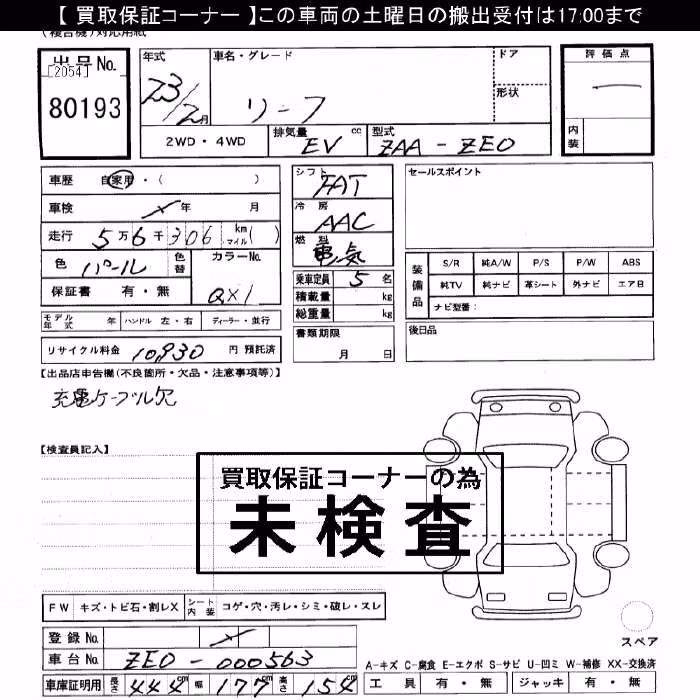 【 買取保証コーナー 】この車両の土曜日の搬出受付は17:00まで
(複合機)対応用紙
出品No.
[2054]
80193
年式 車名・グレード ドア
23/2月 リーフ 形状
2WD・4WD 排気量 EV cc 型式 ZAA-ZE0
評価点
―
内装
車歴 自家用・( )
車検 × 年 月
走行 5万6千306 km マイル( )
色 パール 色替 カラーNo.
保証書 有・無 QX1
シフト FAT
冷房 AAC
燃料 電気
乗車定員 5 名
積載量 kg
総重量 kg
書類期限
月 日
セールスポイント
装備品 S/R 純A/W P/S P/W ABS
純TV 純ナビ 革シート 外ナビ エアB
ナビ型番:
後日品
モデル年式 年 ハンドル 左・右 ディーラー・並行
リサイクル料金 10,930 円 預託済
【出品店申告欄(不良箇所・欠品・注意事項等)】
充電ケーブル欠
【検査員記入】
買取保証コーナーの為
未検査
FW キズ・トビ石・割レX シート内装 コゲ・穴・汚レ・シミ・破レ・スレ
スペア
登録 No. ×
車台 No. ZE0-000563
A-キズ C-腐食 E-エクボ S-サビ U-凹ミ W-補修 XX-交換済
車庫証明用 長さ 444cm 幅 177cm 高さ 154cm
工具 有・無 ジャッキ 有・無